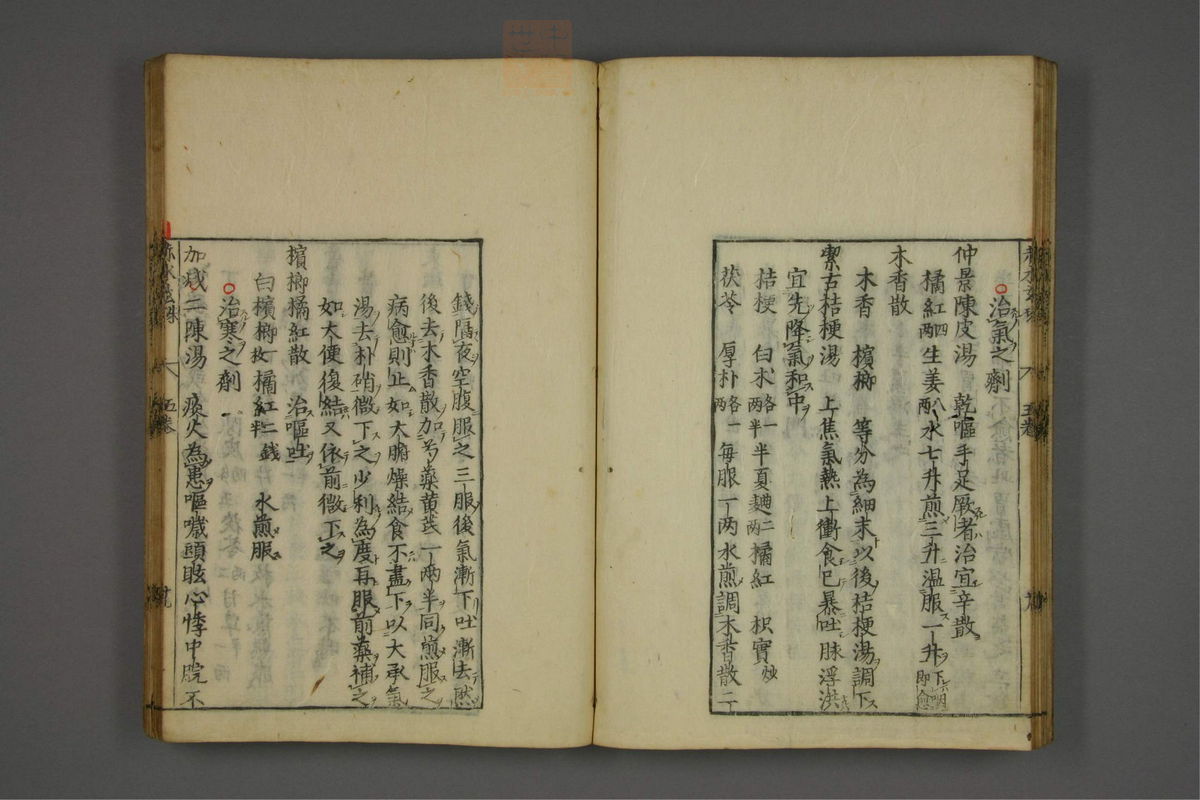 治氣之劑
仲景陳皮湯 乾嘔手足厥者治宜辛散
橘紅四兩生姜八兩水七升煎三升温服一升下咽即愈
木香散
木香 檳榔 等分為細末以後桔梗湯調下
絜古桔梗湯 上焦氣熱上衝食已暴吐脉浮洪
宜先降氣和中
桔梗 白朮各一兩半半夏麯二兩橘紅 枳實炒
茯苓 厚朴各一兩每服一两水煎調木香散二
錢隔夜空腹服之三服後氣漸下吐漸去然
後去木香散加芍藥黄茋一兩半同煎服之
病愈則止如大腑燥結食不盡下以大承氣
湯去朴硝微下之少利為度再服前藥補之
如大便復結又依前微下之
檳榔橘紅散 治嘔吐
白檳榔一枚橘紅二錢 水煎服
治寒之劑
加减二陳湯 痰火為患嘔噦頭眩心悸中脘不
五卷